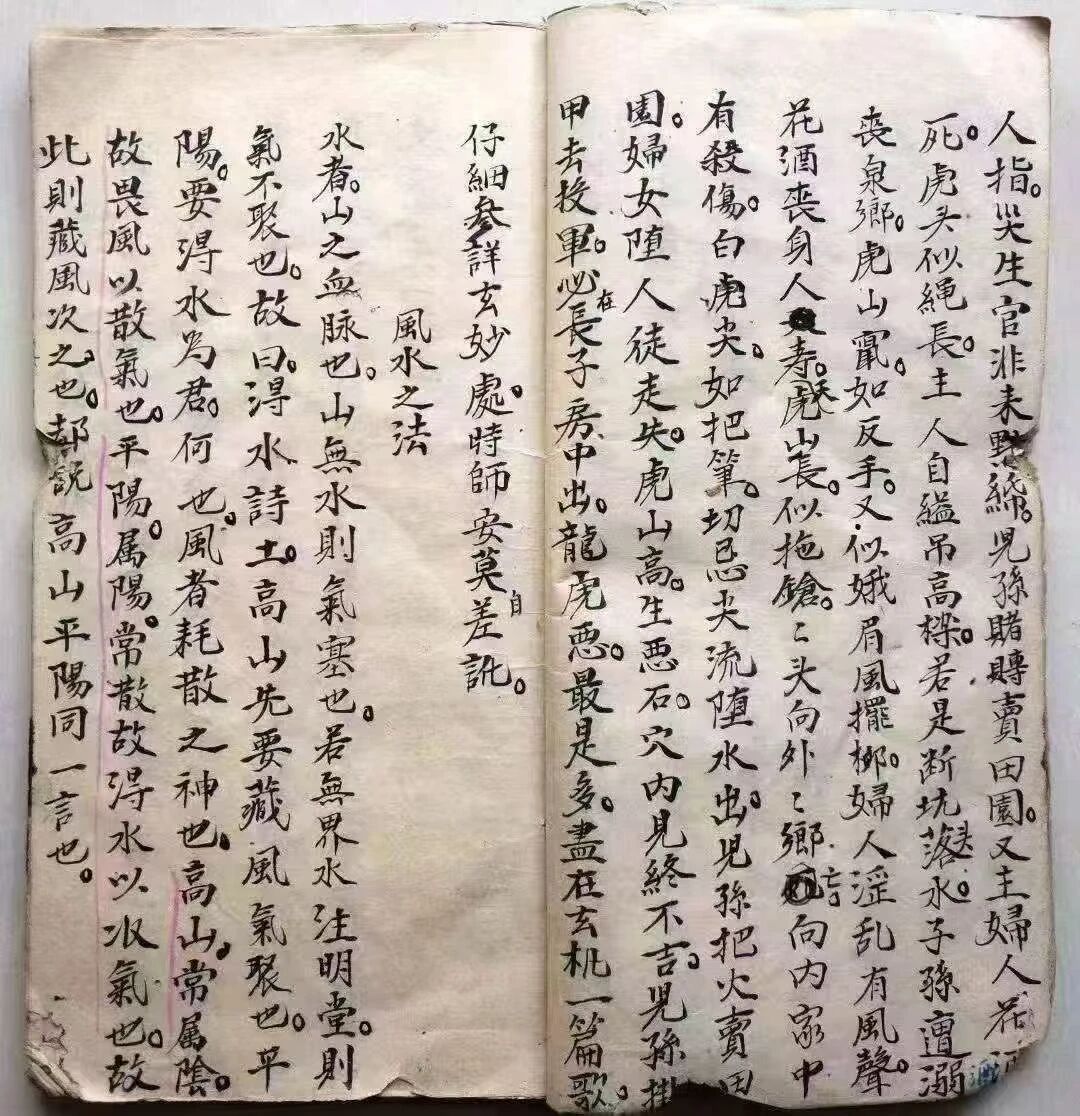 人指。災生官非未點綿。児孫賭賻賣田園。又主婦人花酒
死。虎头似繩長。主人自縊吊高樑。若是断坑落头水。子孫遭溺
喪泉鄉。虎山竄。如反手。又似娥眉風擺柳。婦人淫乱有風聲。
花酒喪身人夭寿。虎山長。似拖鎗。〻头向外〻鄉亡。向内家中
有殺傷。白虎尖。如把筆。切忌尖流堕水出。児孫把火賣田
園。婦女堕人徒走失。虎山高。生悪石。穴内見終不吉。児孫掛
甲去投軍。必在長子房中出。龍虎悪。最是多。盡在玄机一篇歌。
仔細叅詳玄妙處。時師安莫差自訛。
風水之法
水者。山之血脉也。山無水則氣塞也。若無界水注明堂。則
氣不聚也。故曰。淂水詩土。高山先要藏風氣聚也。平
陽。要淂水為君。何也。風者耗散之神也。高山。常属陰。
故畏風以散氣也。平陽。属陽。常散故淂水以収氣也。故
此則藏風次之也。都説高山平陽同一言也。